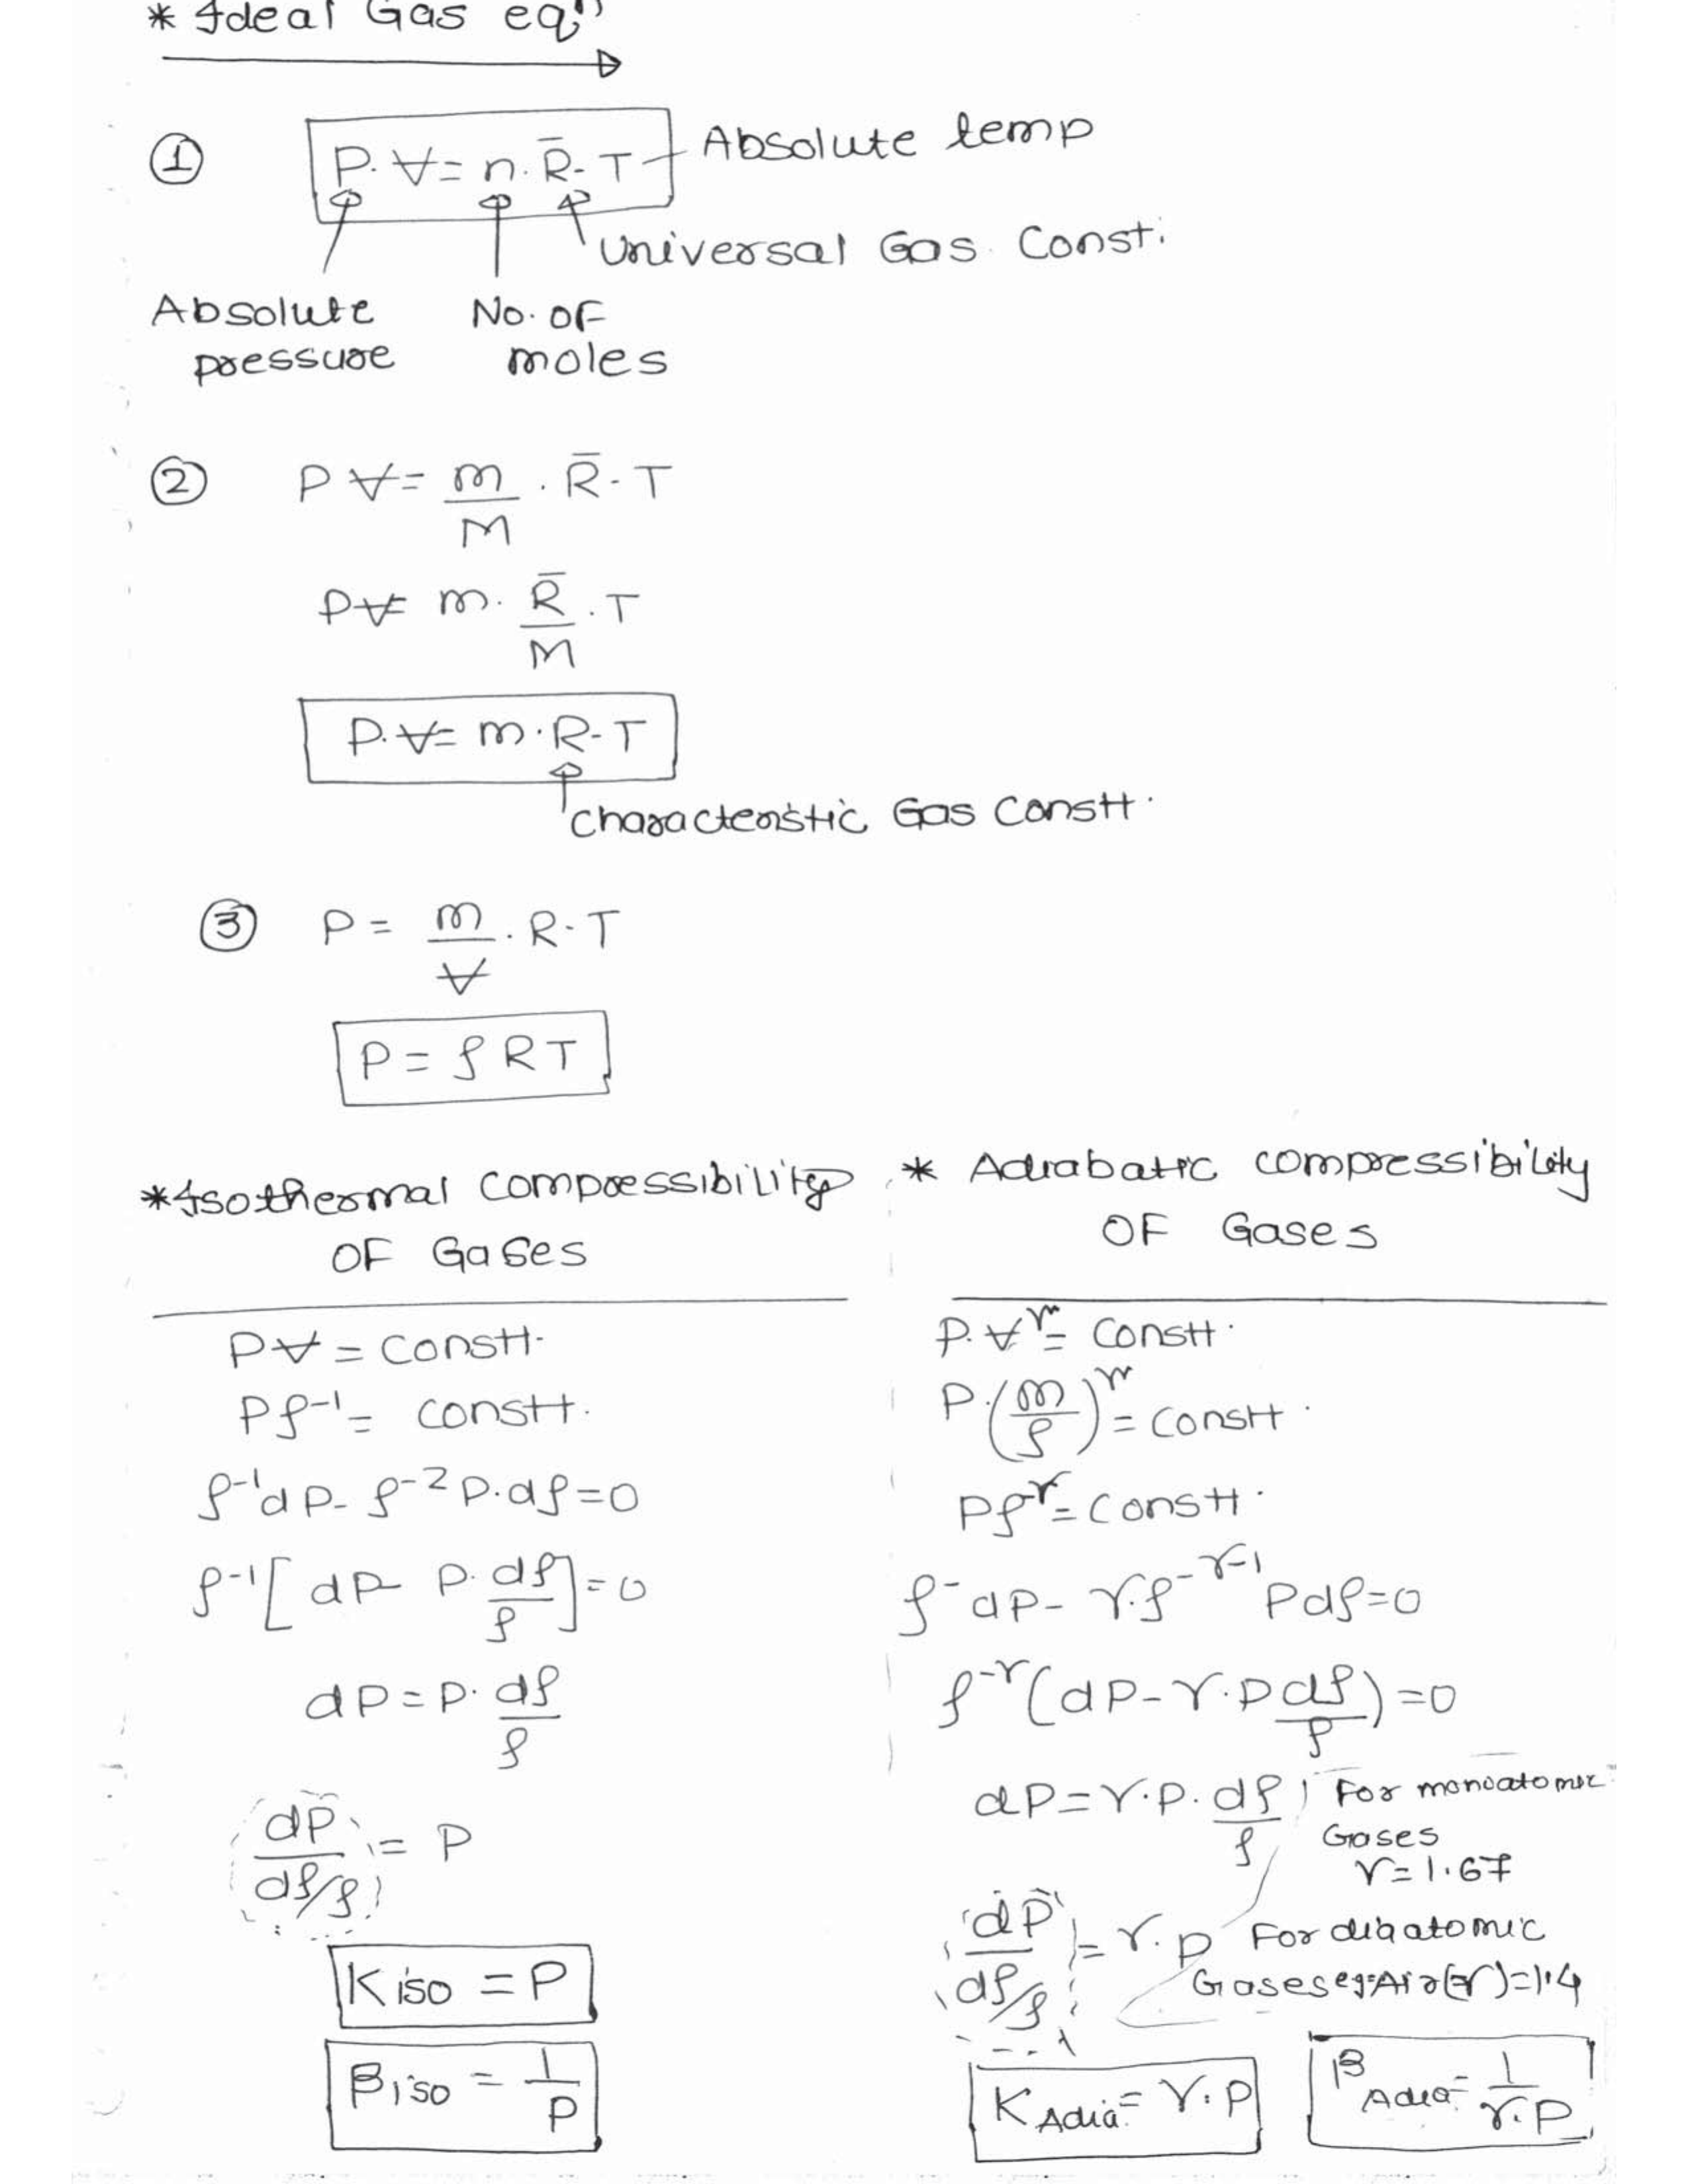 * Ideal Gas eqⁿ
① P. V̶ = n. R̄. T Absolute temp
Universal Gas. Const.
Absolute No. OF
pressure moles
② P V̶ = m/M . R̄. T
P V̶ = m. R̄/M . T
P. V̶ = m. R. T
Characteristic Gas Constt.
③ P = m/V̶ . R. T
P = ρ R T
* Isothermal compressibility
OF Gases
P V̶ = Constt.
P ρ⁻¹ = constt.
ρ⁻¹ dP - ρ⁻² P. dρ = 0
ρ⁻¹ [ dP - P. dρ/ρ ] = 0
dP = P. dρ/ρ
dP/(dρ/ρ) = P
K iso = P
β iso = 1/P
* Adiabatic compressibility
OF Gases
P. V̶^γ = Constt.
P. (m/ρ)^γ = Constt.
P ρ^-γ = Constt.
ρ⁻ dP - γ. ρ^-γ-1 P dρ = 0
ρ^-γ ( dP - γ. P dρ/ρ ) = 0
dP = γ. P. dρ/ρ
For monoatomic
Gases
γ = 1.67
dP/(dρ/ρ) = γ. P
For diatomic
Gases eg: Air (γ) = 1.4
K Adia = γ. P
β Adia = 1/γ. P